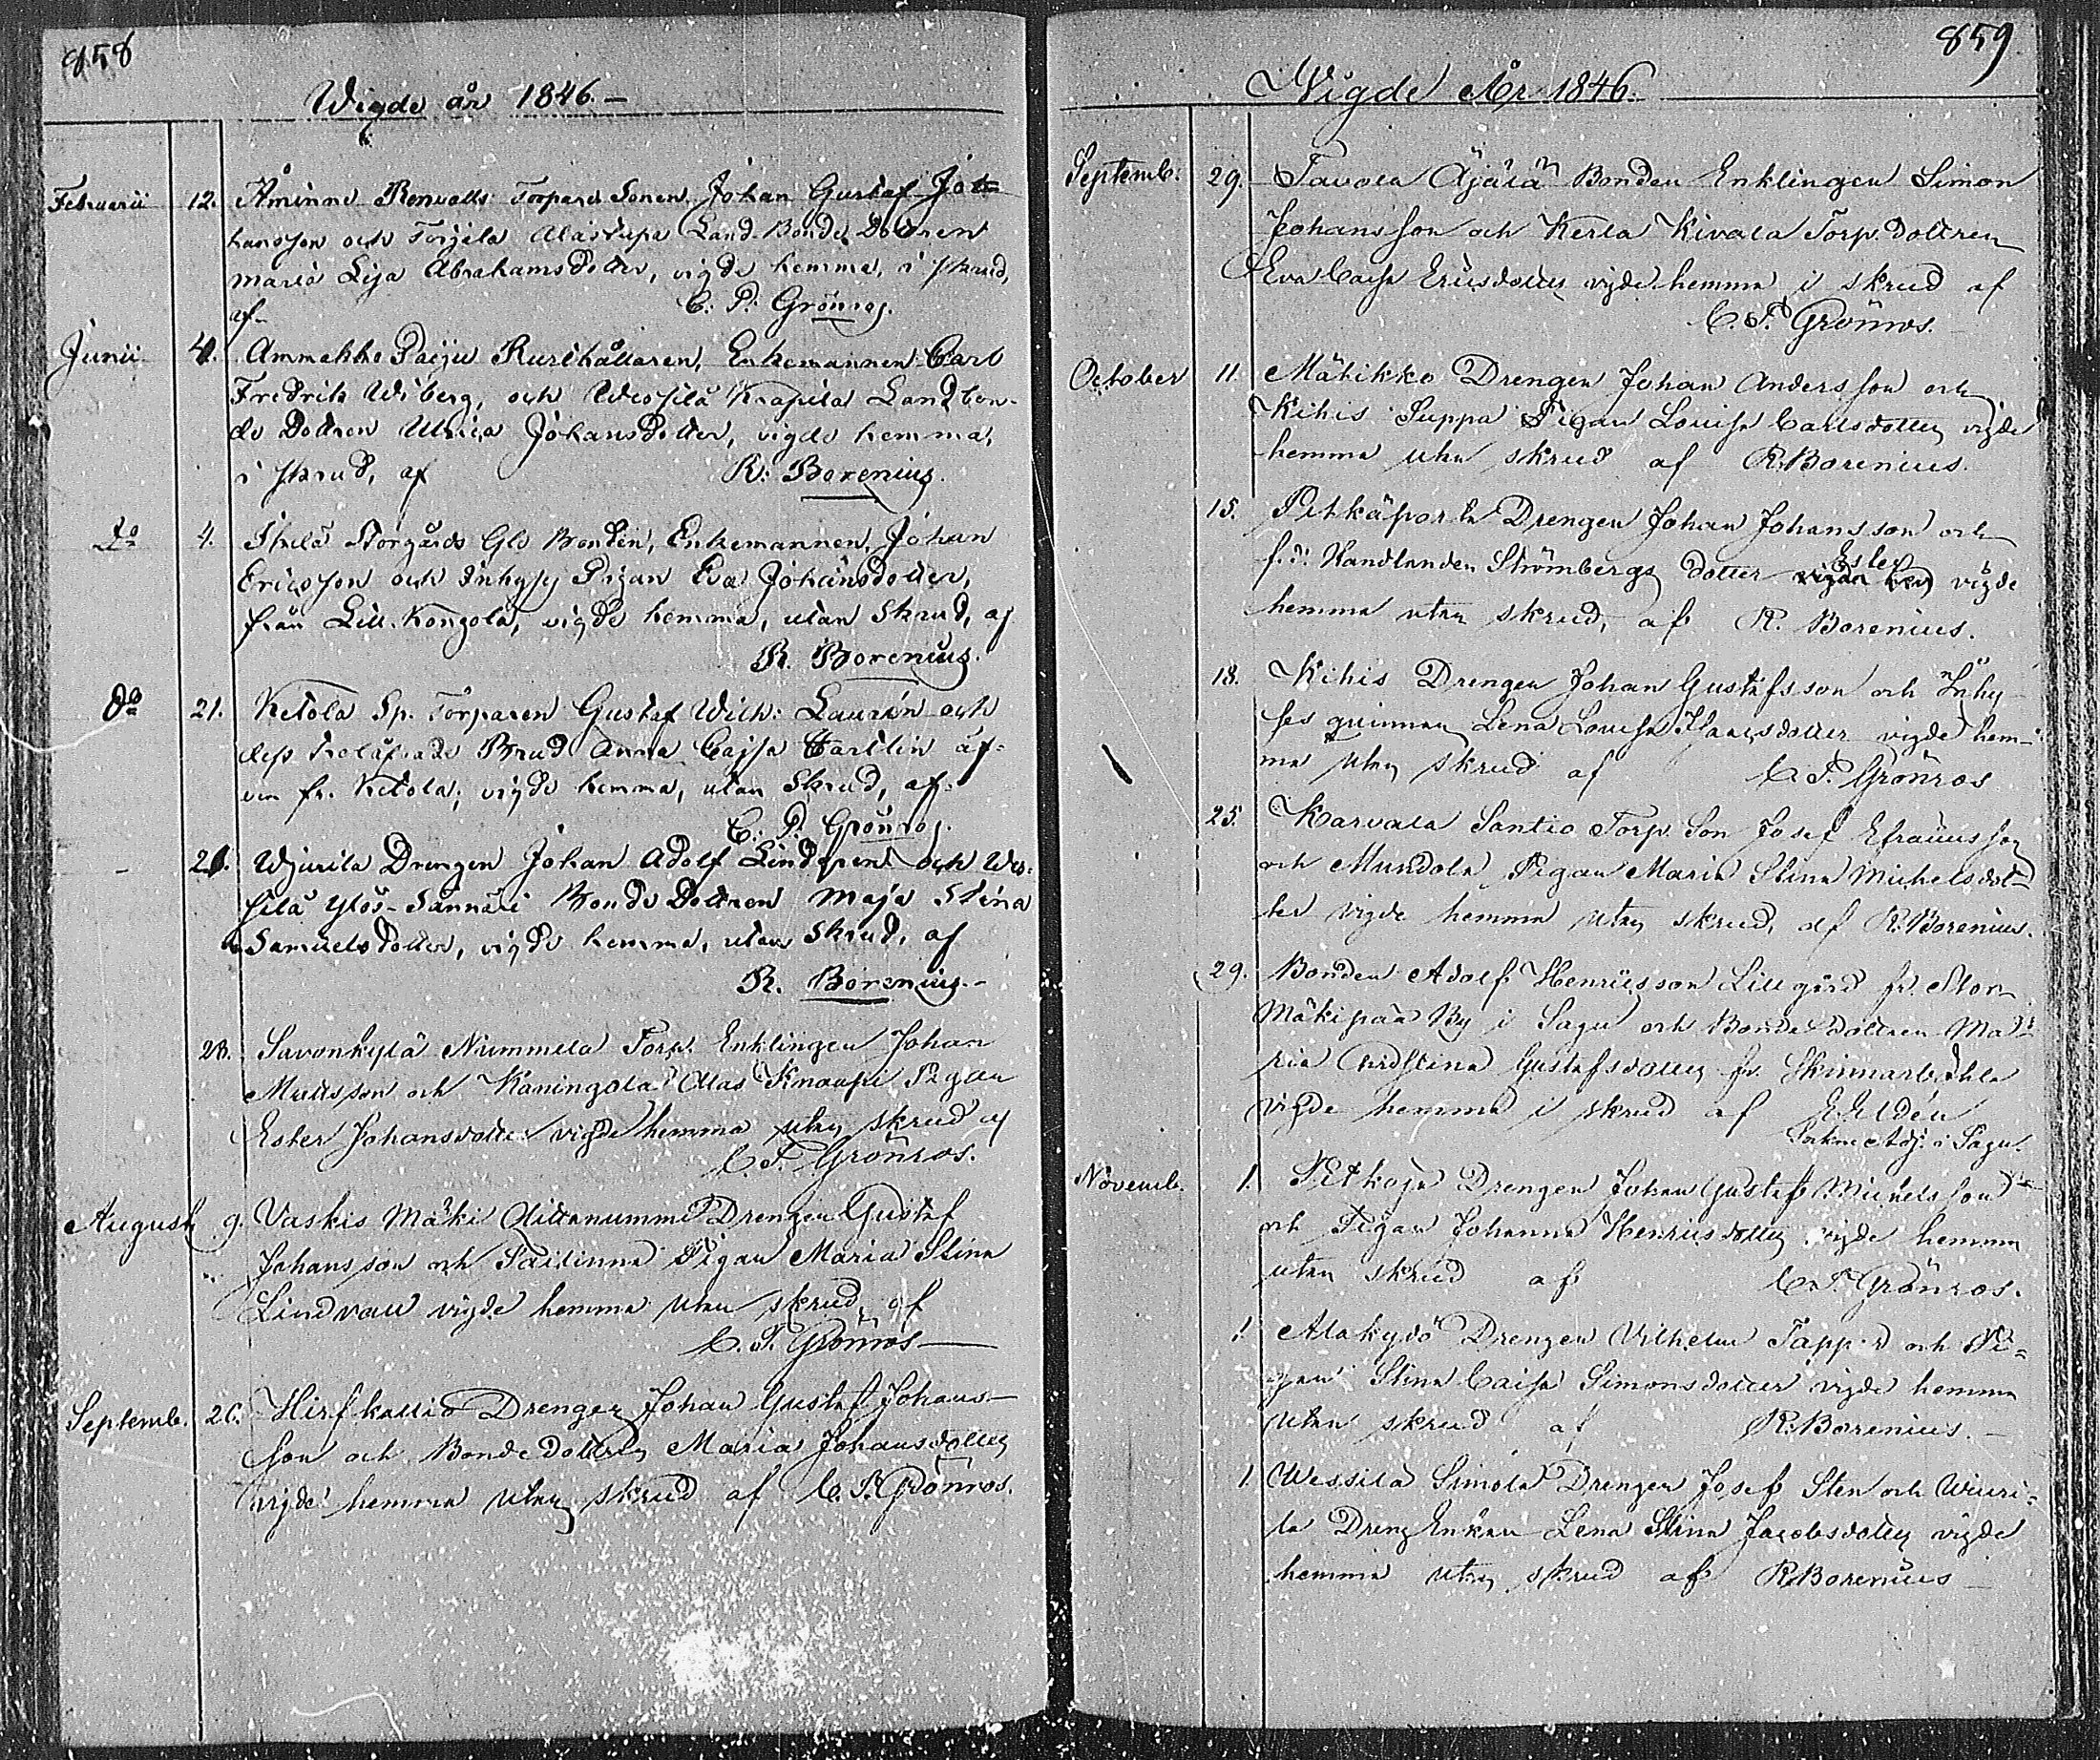 858
Wigde år 1846.
Februarii 12. Åminne Renvalls Torpare Sonen Johan Gustaf Jo=
hansson och Torjela Alastupa Land-Bonde Dottren
Maria Lisa Abrahams Dotter, vigde hemma, i skrud,
af C. P. Grönros.
Junii 4. Ammakko Pajju Rusthållaren, Enkemannen Carl
Fredrik Wiberg, och Krapila Landbon-
de Dottren Ulrica Johans Dotter, vigde hemma,
i skrud, af R: Borenius.
Do 4. Storgårds Gld Bonden, Enkemannen, Johan
Ericsson och Inhyss Pigan Eva Johansdotter,
från Lill-Kongola, vigde hemma, utan Skrud, af
R. Borenius.
Do 21. Ketola Sp. Torparen Gustaf Wilh: Laurén och
dess Brud Anna Cajsa Carllin äf-
ven fr. Ketola; vigde hemma, utan Skrud, af
C: P: Grönros.
- 21. Wjurila Drengen Johan Adolf och Wes-
silä Ylös-Sännäri Bonde Dottren Maja Stina
Samuels Dotter, vigde hemma, utan Skrud, af
R. Borenius.-
28. Savonkylä Nummela Torp. Enklingen Johan
Mattsson och Kaningola Alas Knaapi Pigan
Ester Johansdotter vigde hemma utan skrud af
C. P. Grönros.
August 9. Vaskis Mäki Drengen Gustaf
Johansson och Pigan Maria Stina
Lindvall vigde hemma utan skrud, af
C. P. Grönros
Septemb. 26. Hirskallio Drengen Johan Gustaf Johans-
son och Bonde Dottren Maria Johansdotter
vigde hemma utan skrud af C. P. Grönros.
859
Wigde År 1846.
Septemb: 29. Tavola Äjälä Bonden Enklingen Simon
Johansson och Kerla Kivala Torp. dottren
Eva Caisa Ericsdotter vigde hemma i skrud af
C. P. Grönros.
October 11. Mähikko Drengen Johan Andersson och
Kihis Suppa Pigan Louisa Carlsdotter vigde
hemma utan skrud af R. Borenius.
15. Pitkäporta Drengen Johan Johansson och
f.d. Handlanden Strömbergs dotter Ester vigde
hemma utan skrud, af R. Borenius.
18. Kihis Drengen Johan Gustafsson och Inhy-
ses quinnan Lena Lovisa Isaacsdotter vigde hem-
ma utan skrud af C. P. Grönros
25. Karvala Santio Torp. Son Josef Efraimsson
och Mundola Pigan Maria Stina Michelsdot-
ter vigde hemma utan skrud, af R. Borenius.
29. Bonden Adolf Henricsson Lillgård fr. Stor
Mäkipää By i Sagu och Bonde dottren Ma-
ria Christina Gustafsdotter fr.
vigde hemma i skrud af
Adj. i Sagu.
Novemb. 1. Pitkoja Drengen Johan Gustaf Michelsson
och Pigan Johanna Henricsdotter vigde hemma
utan skrud af C. P. Grönros.
1. Alakydö Drengen Vilhelm Tapper och Pi=
gan Stina Caisa Simonsdotter vigde hemma
utan skrud af R. Borenius.
1. Wessilä Simola Drengen Josef Sten och Wiuri=
la Dreng Enkan Lena Stina Jacobsdotter vigde
hemma utan skrud af R. Borenius